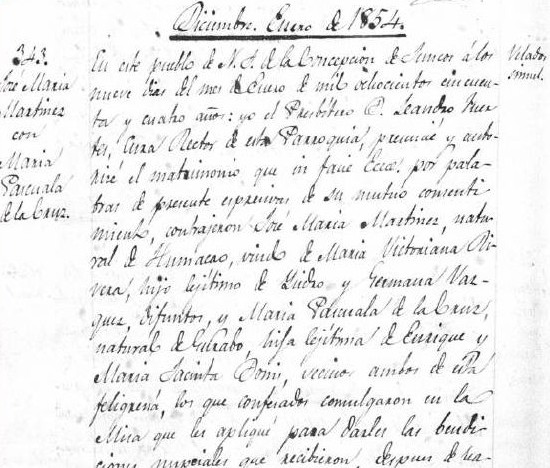 Diciembre. Enero de 1854.
343.
José Maria
Martinez
con
Maria
Pascuala
de la Cruz.
En este pueblo de N. S. de la Concepcion de Juncos á los
nueve dias del mes de Enero de mil ochocientos cincuen-
ta y cuatro años: yo el Presbítero D. Leandro Puer
tas, Cura Rector de esta Parroquia, presencié y auto-
rizé el matrimonio que in facie Ecce. por pala-
bras de presente espresivas de su mutuo consenti
miento, contrajeron José Maria Martinez, natu-
ral de Humacao, viudo de Maria Victoriana Ri-
vera, hijo legítimo de Isidro y Germana Vaz-
quez, difuntos, y Maria Pascuala de la Cruz,
natural de Gurabo, hija legítima de Enrique y
Maria Jacinta, vecinos ambos de esta
feligresía, los que confesados comulgaron en la
Misa que les apliqué para darles las bendi-
ciones nupciales que recibieron, despues de ha-
Velados
simul.